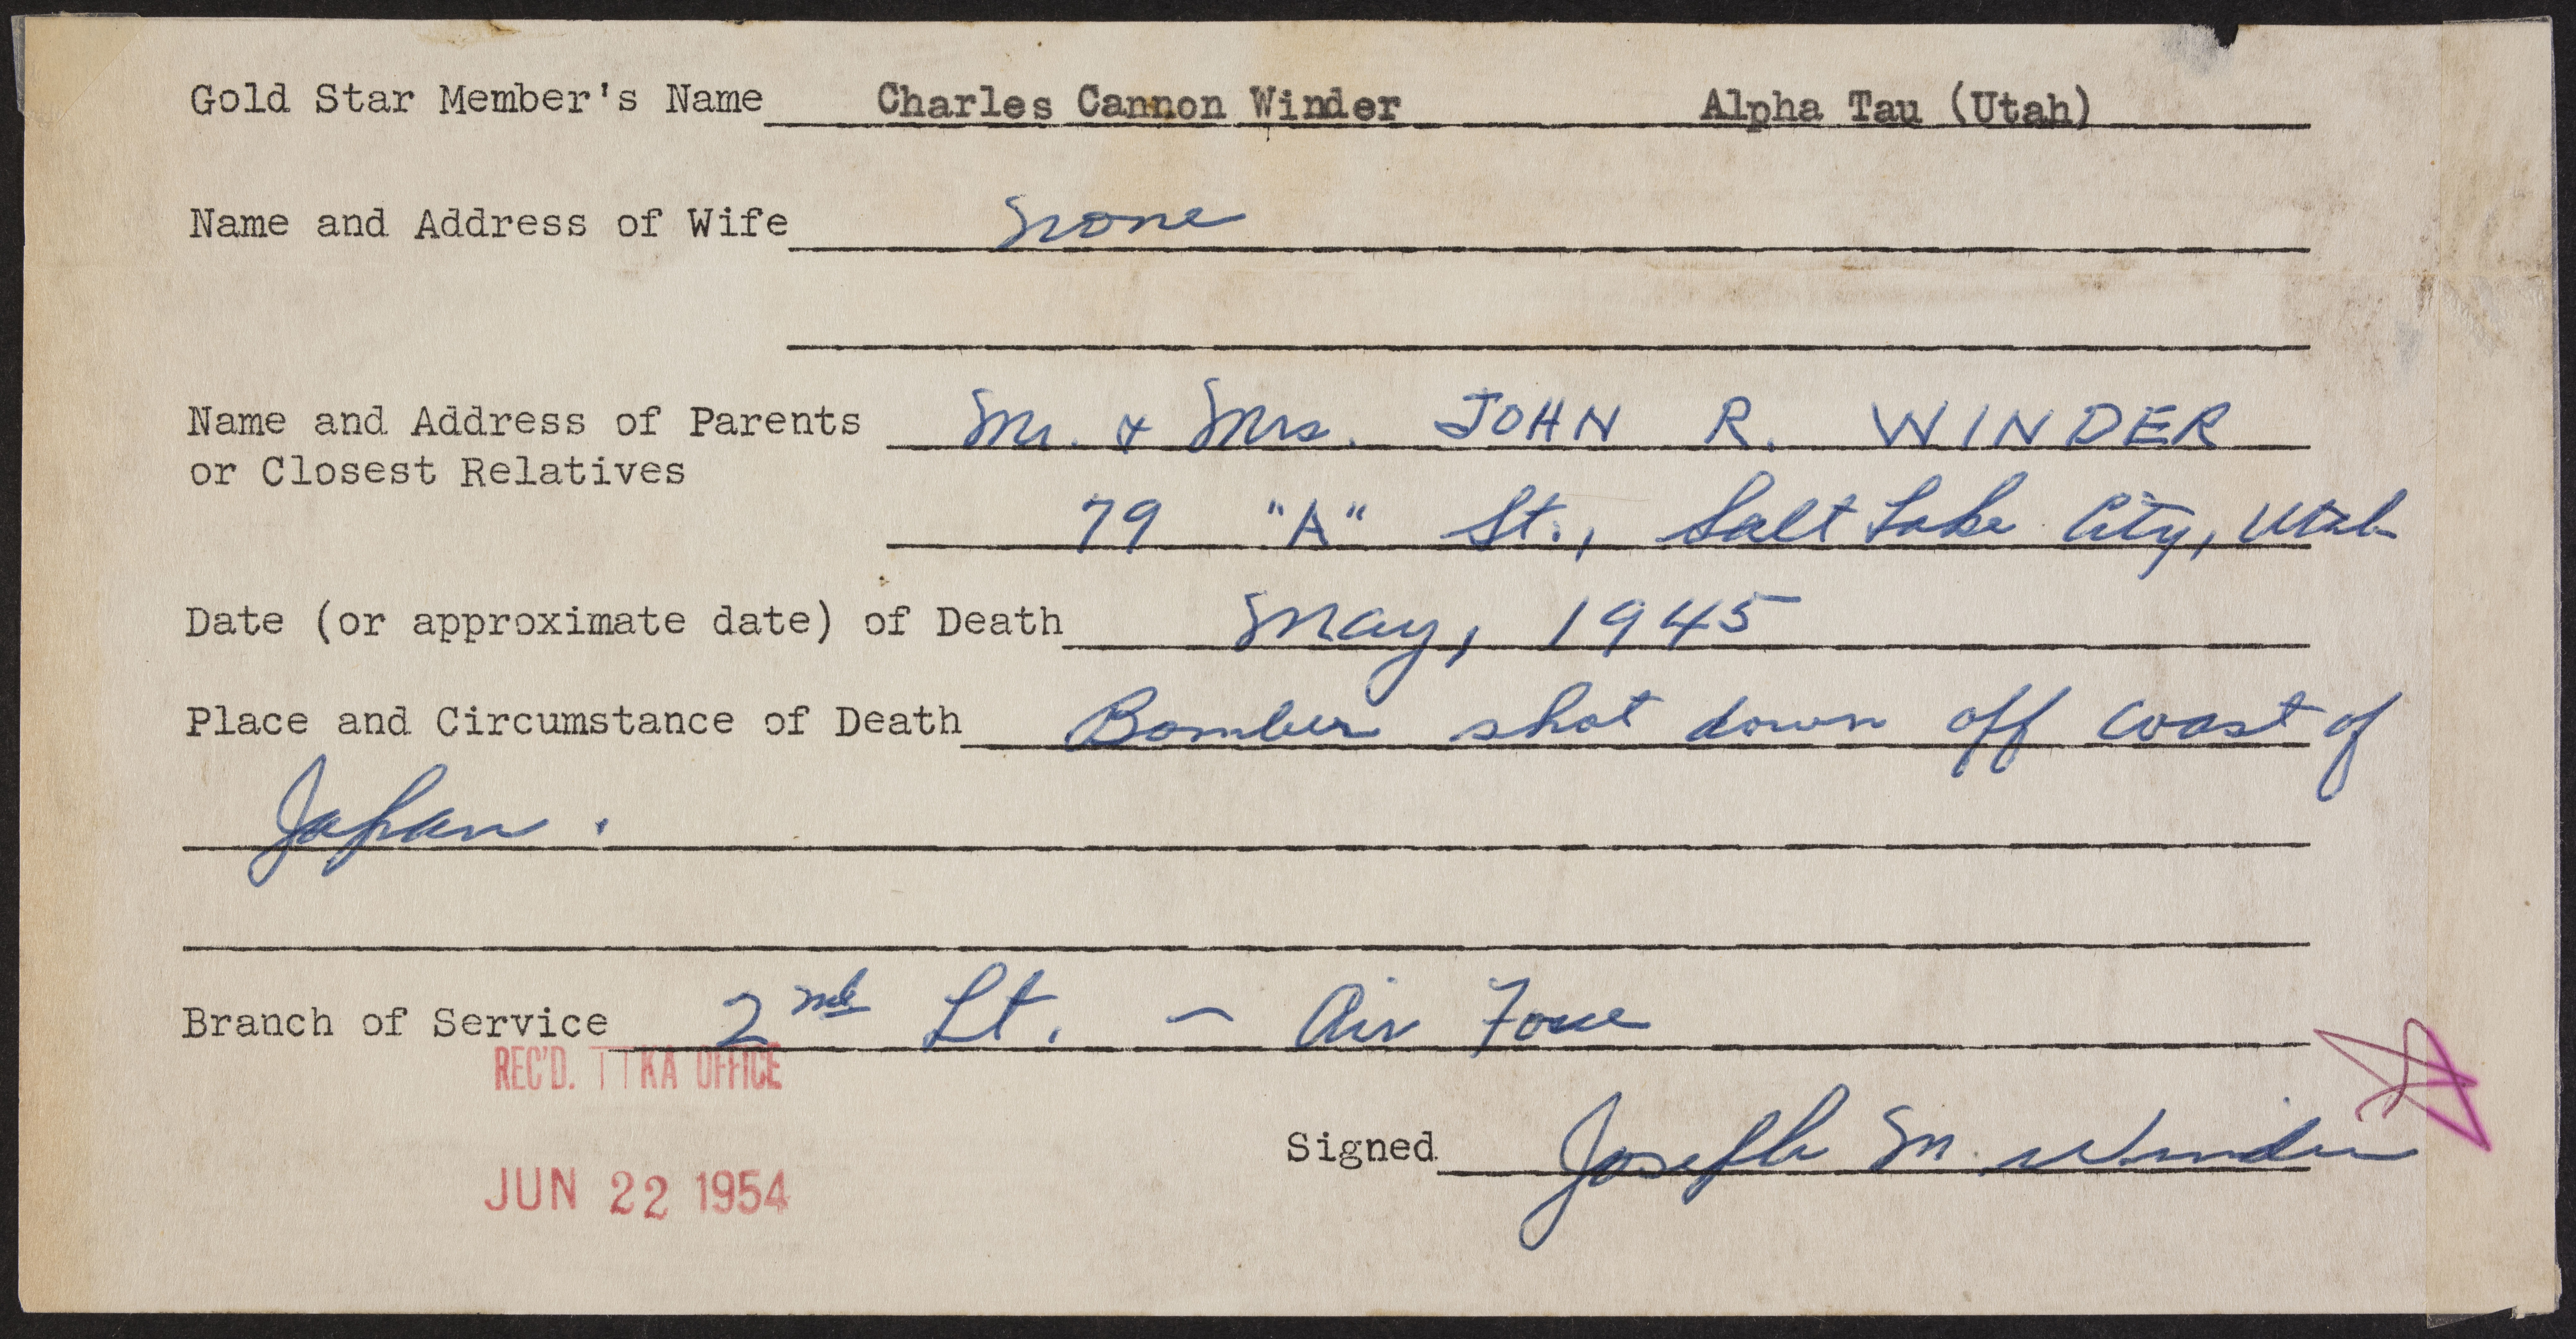 Gold Star Member's Name Charles Cannon Winder Alpha Tau (Utah)
Name and Address of Wife None
Name and Address of Parents Mr. & Mrs. JOHN R. WINDER
or Closest Relatives
79 "A" St., Salt Lake City, Utah
Date (or approximate date) of Death May, 1945
Place and Circumstance of Death Bomber shot down off coast of
Japan.
Branch of Service 2nd Lt. - Air Force
REC'D. ΠKA OFFICE
Signed Joseph M. Winder
JUN 22 1954